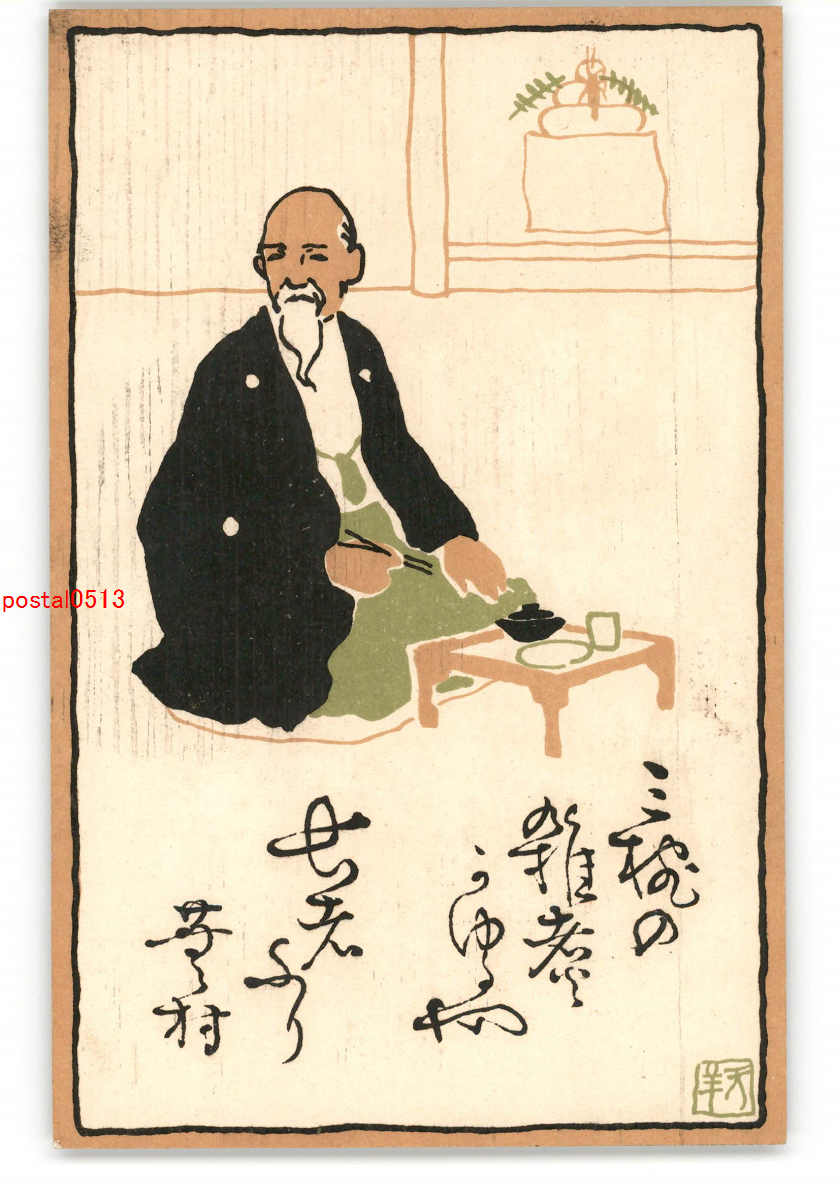 三椀の
雑煮
かゆるや
長者ふり
蕪村
postal0513